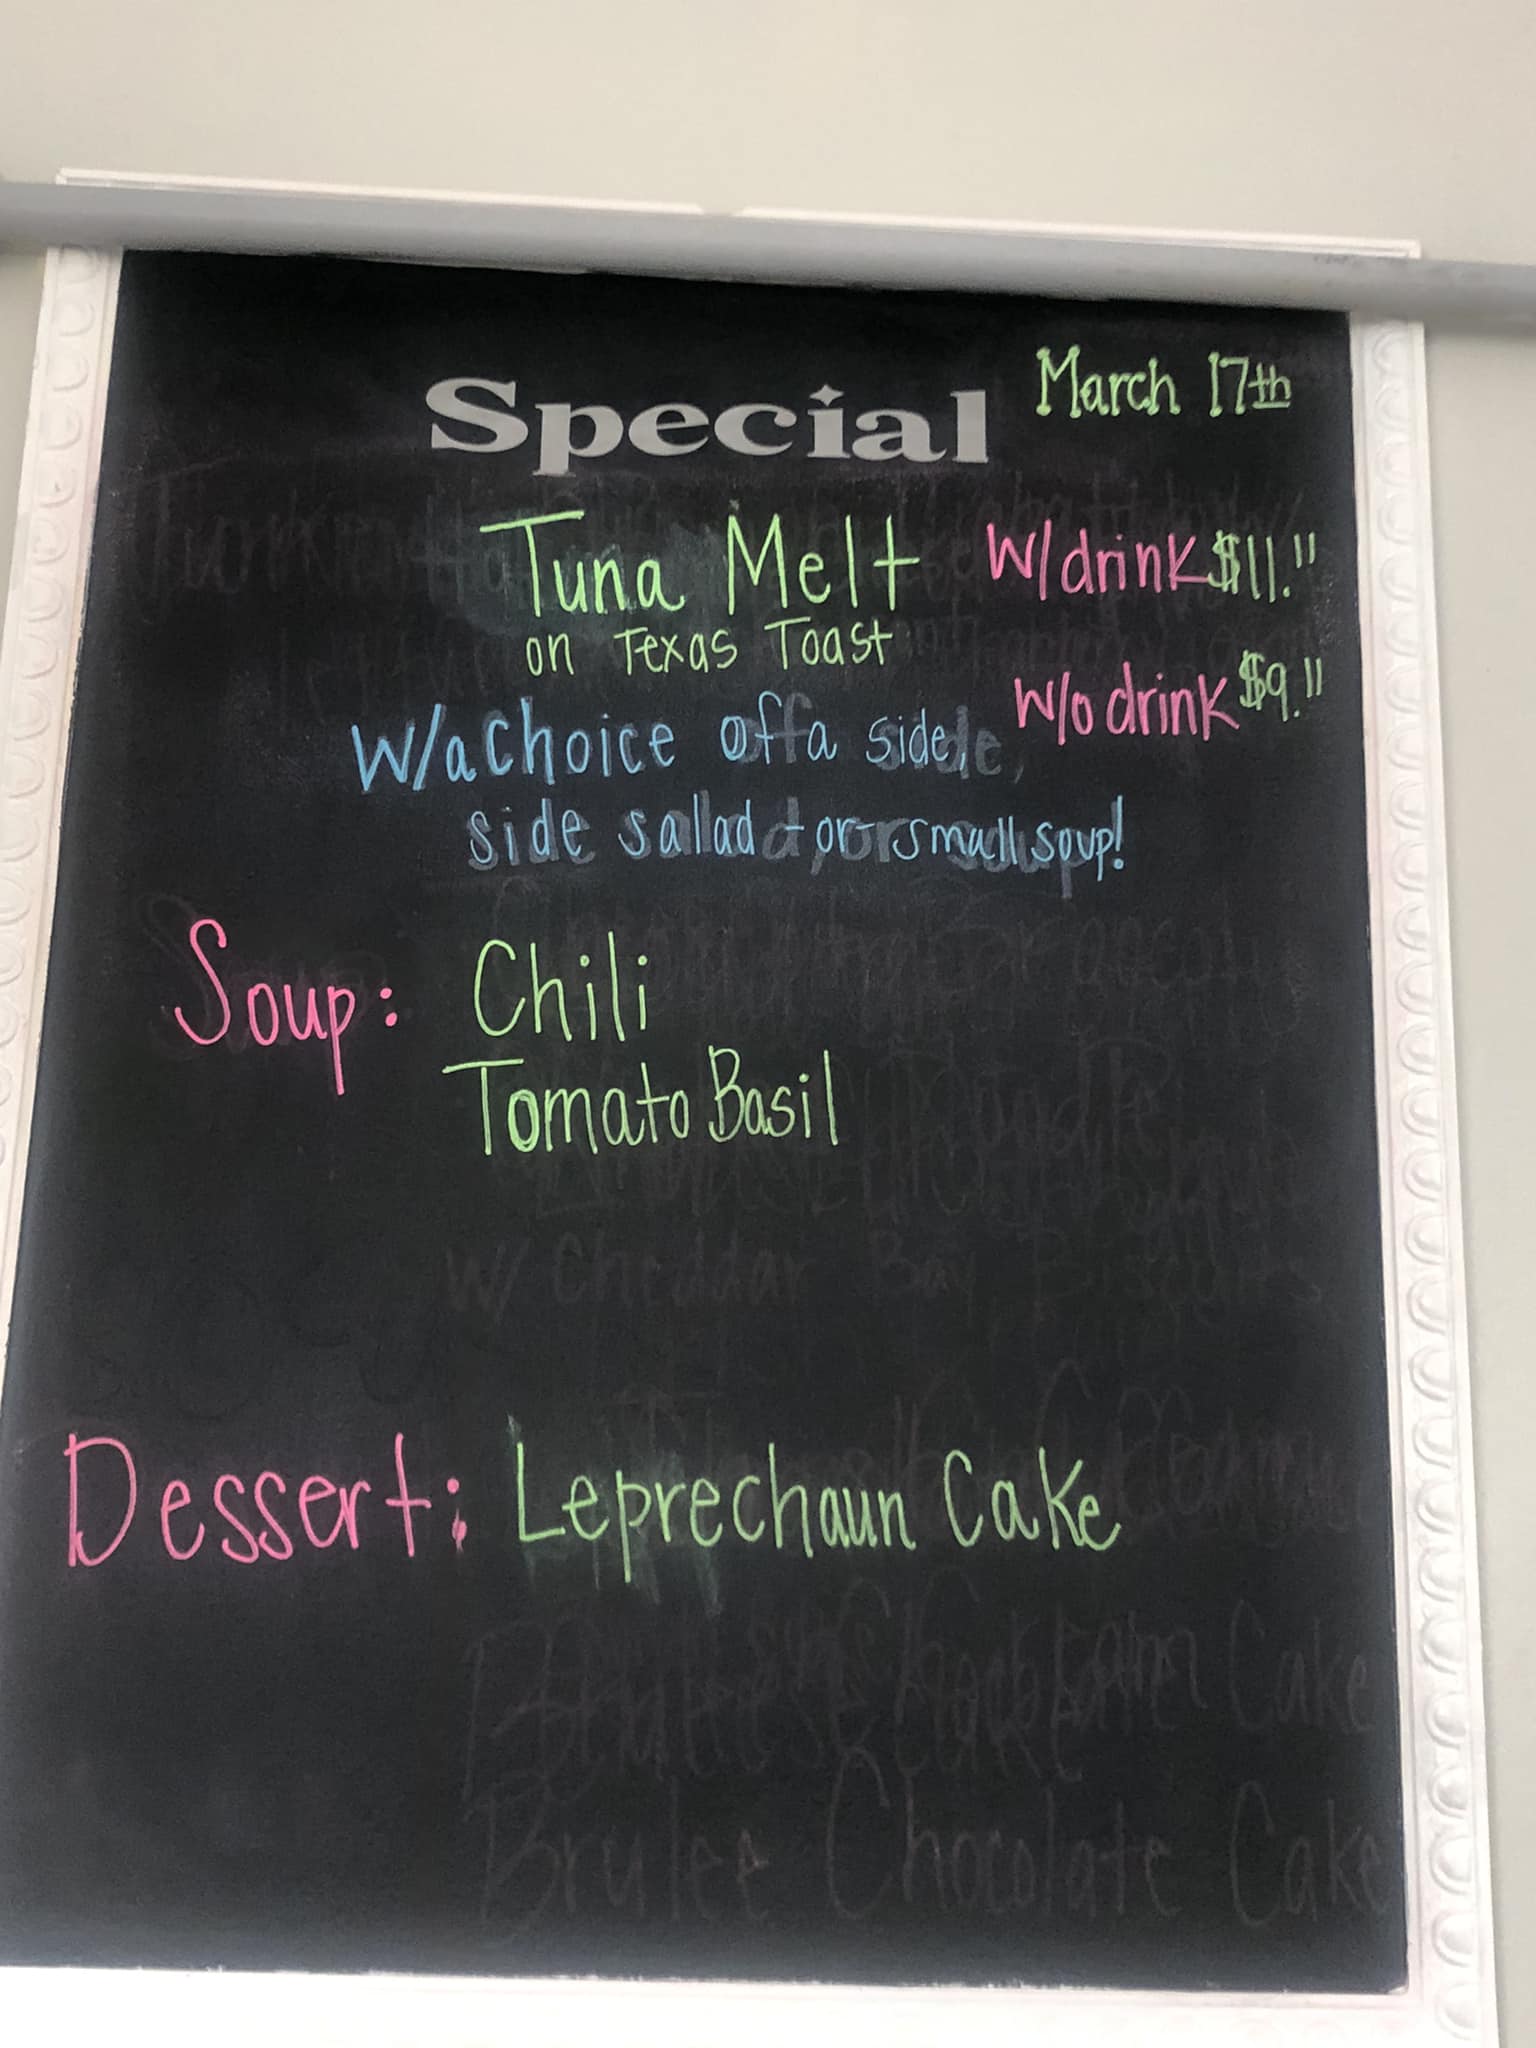 March 17th
Special
Tuna Melt w/drink $11.11
on Texas Toast
w/o drink $9.11
w/a choice of a side,
side salad -or- small soup!
Soup: Chili
Tomato Basil
w/ Cheddar Bay Biscuits
Dessert: Leprechaun Cake
Cake
Brulee Chocolate Cake